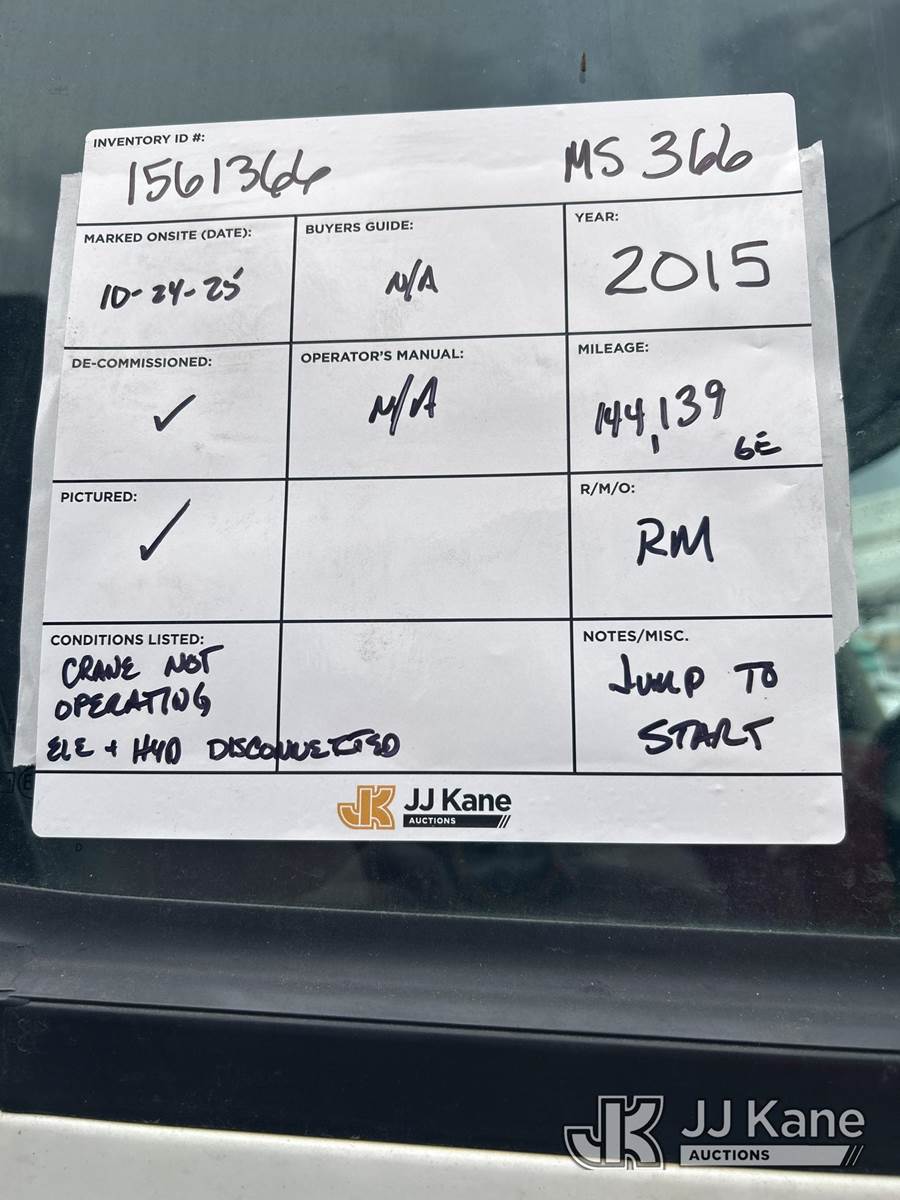 INVENTORY ID #:
1561366 MS 366
MARKED ONSITE (DATE):
10-24-25
BUYERS GUIDE:
N/A
YEAR:
2015
DE-COMMISSIONED:
✓
OPERATOR'S MANUAL:
N/A
MILEAGE:
144,139
PICTURED:
✓
R/M/O:
RM
CONDITIONS LISTED:
CRANE NOT
OPERATING
ELE + HYD DISCONNECTED
NOTES/MISC.
JUMP TO
START
JK JJ Kane
AUCTIONS
JK JJ Kane
AUCTIONS